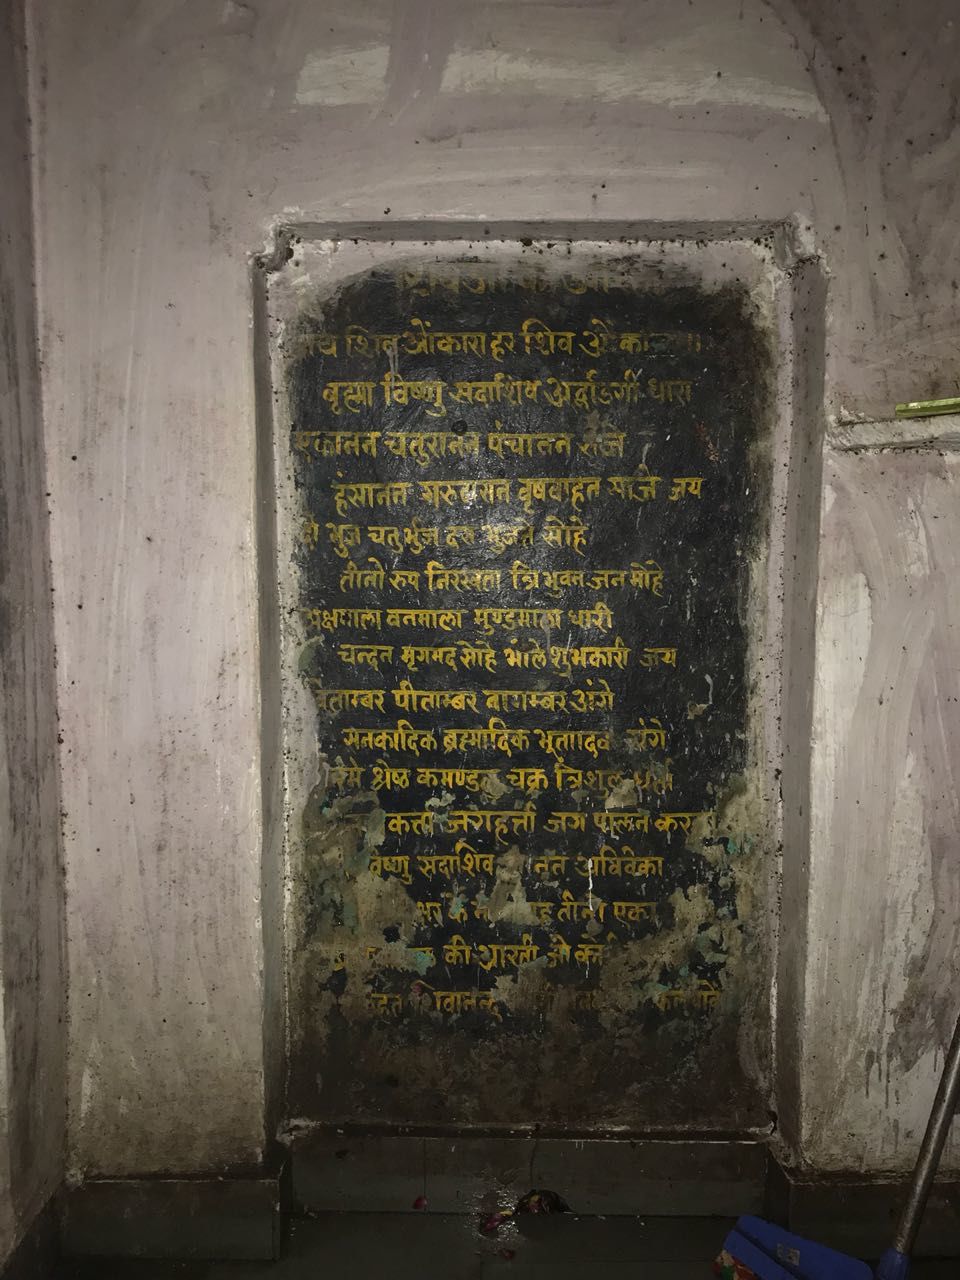 शिव ओंकारा हर शिव ओंकारा
बृह्मा विष्णु सदाशिव अर्द्वाडगी धारा
एकानन चतुरानन पंचानन राजे
हंसानन गरुडासन वृषवाहन साजे जय
दो भुज चतुर्भुज दस भुजते सोहे
तीनो रुप निरखता त्रिभुवन जन मोहे
अक्षमाला वनमाला मुण्डमाला धारी
चन्दन मृगमद सोहे भाले शुभकारी जय
पीताम्बर बागम्बर अंगे
सनकादिक ब्रह्मादिक भूतादिक संगे
श्रेष्ठ कमण्डल चक्र त्रिशूल
कर्ता जगहर्ता जग पालन
सदाशिव अविवेका
तीनो एका
की आरती जो कोई